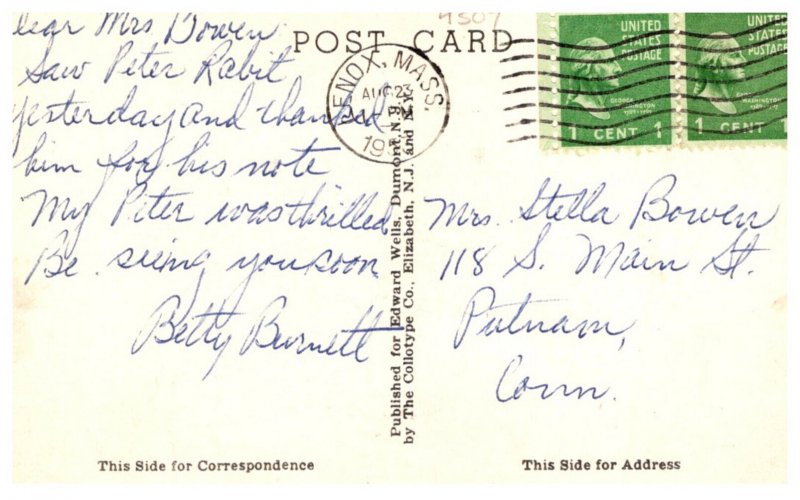 4507
POST CARD
UNITED
STATES
POSTAGE
GEORGE
WASHINGTON
1 CENT 1
UNITED
STATES
POSTAGE
GEORGE
WASHINGTON
1 CENT 1
ENOX, MASS.
AUG 23
PM
19
ear Mrs Bowen
Saw Peter Rabit
yesterday and thanked
him for his note
My Peter was thrilled
Be seeing you soon
Betty Burnett
Published for Edward Wells, Dumont, N.J.
by The Collotype Co., Elizabeth, N.J. and N.Y.
Mrs. Stella Bowen
118 S. Main St.
Putnam,
Conn.
This Side for Correspondence
This Side for Address